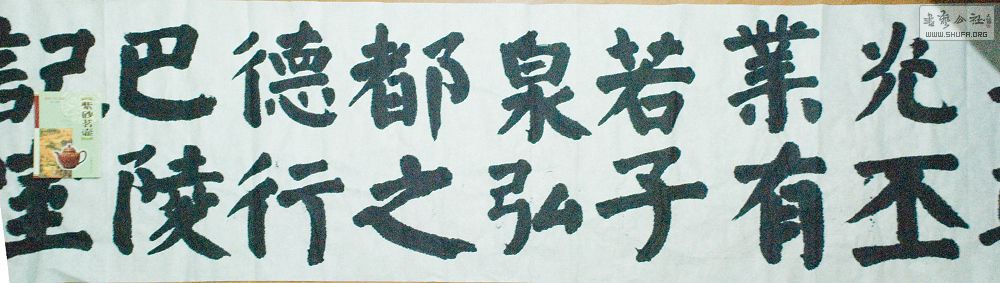 光丕
業有
若子
泉弘
都之
德行
巴陵
記
紫砂茗壶
書藝公社
WWW.SHUFA.ORG